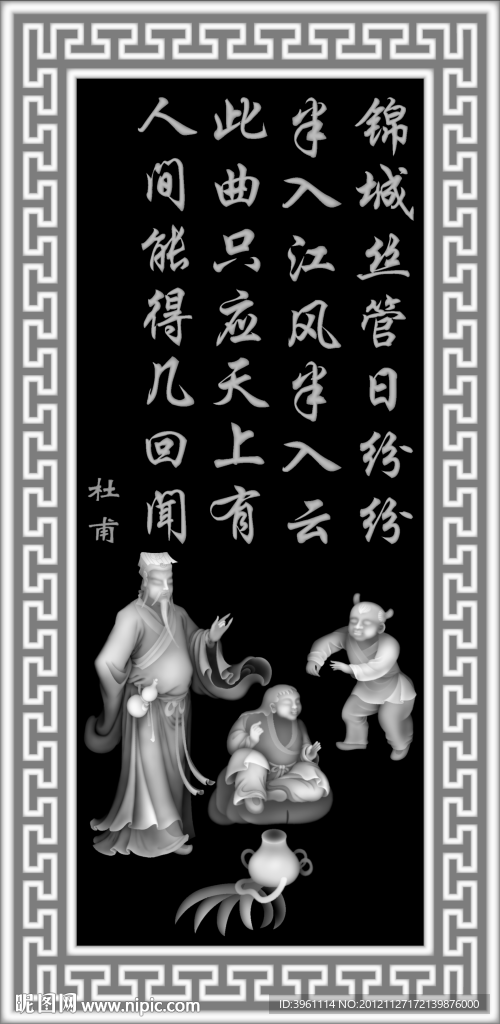 锦城丝管日纷纷
半入江风半入云
此曲只应天上有
人间能得几回闻
杜甫
昵图网 www.nipic.com
ID:3961114 NO:20121127172139876000